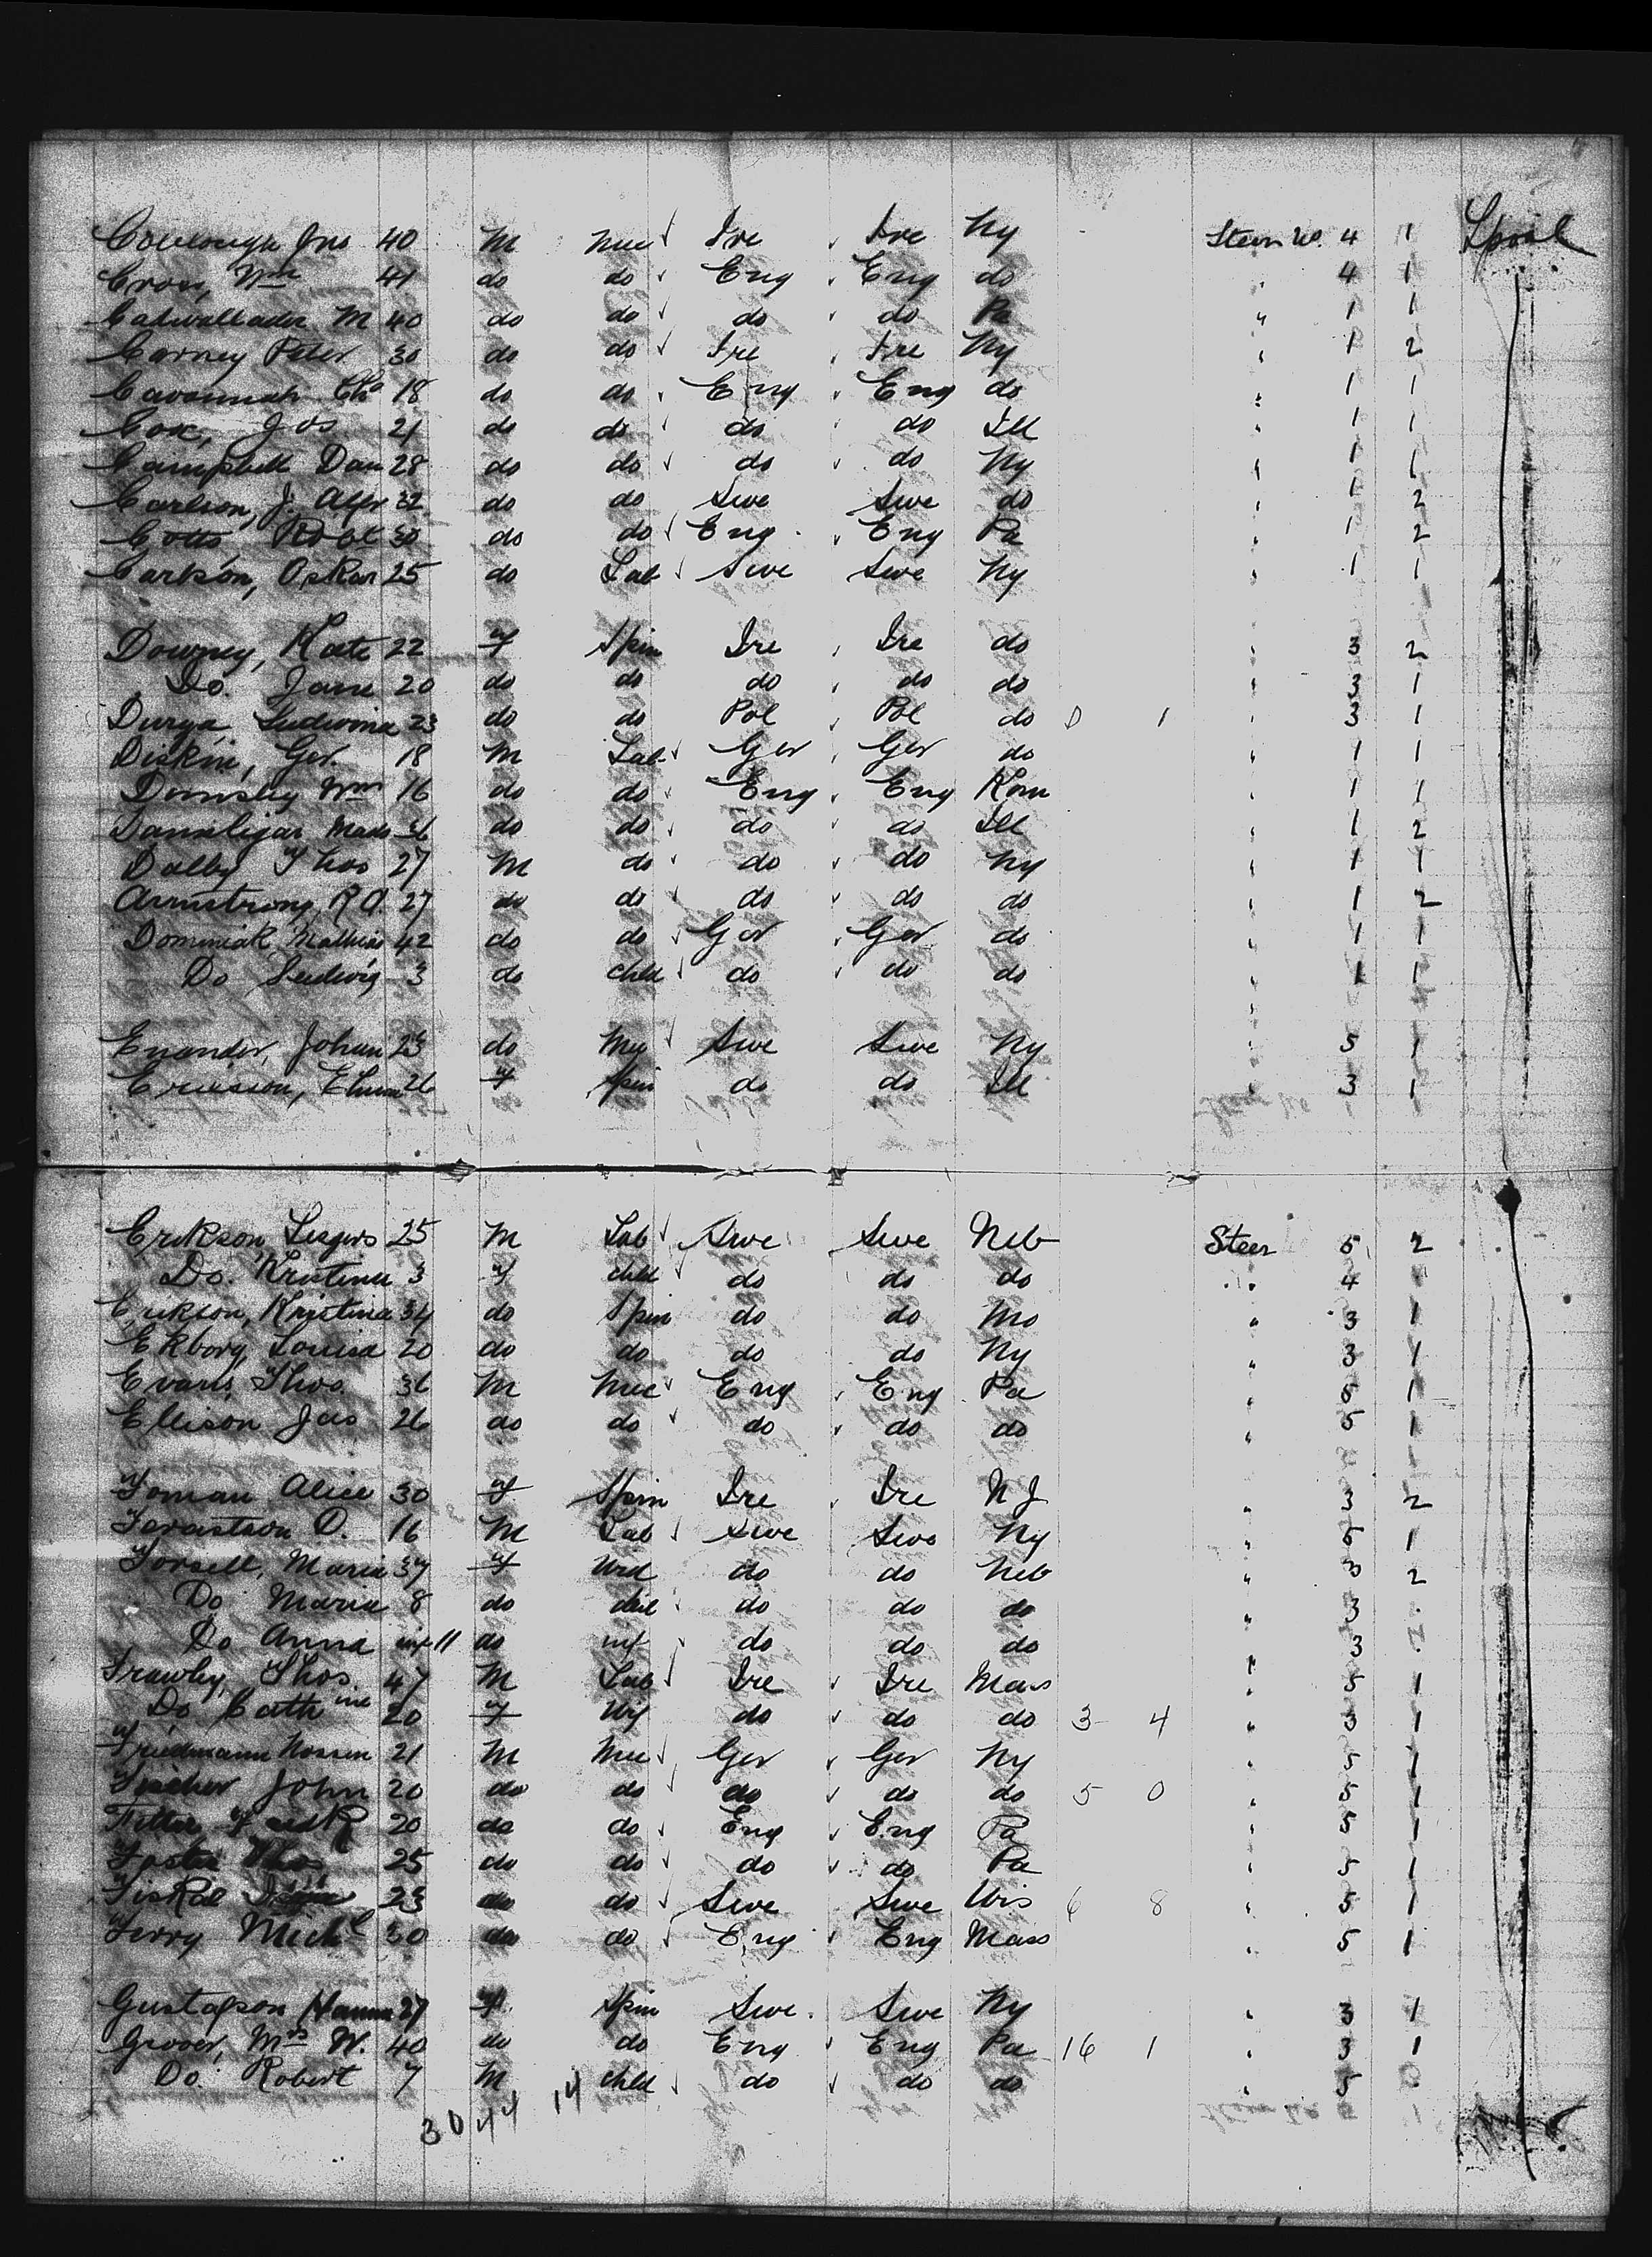 Jno 40 M Mec Ire Ire Ny Steer W. 4 1 Lpool
Cross, Wm 41 do do Eng Eng do " 4 1
Cadwallader M 40 do do do do Pa " 1 1
Carney Peter 30 do do Ire Ire Ny " 1 2
Cavannah 18 do do Eng Eng do " 1 1
Cox, Jos 21 do do do do Ill " 1 1
Campbell Dan 28 do do do do Ny " 1 1
Carlson, J. Alfr 32 do do Swe Swe do " 1 2
Cotts Robt 30 do do Eng Eng Pa " 1 2
Carlson, Oskar 25 do Lab Swe Swe Ny " 1 1
Downey, Kate 22 f Spin Ire Ire do " 3 2
Do. Jane 20 do do do do do " 3 1
Durga, Ludwina 23 do do Pol Pol do 0 1 " 3 1
Diskin, Ger. 18 M Lab Ger Ger do " 1 1
Wm 16 do do Eng Eng " 1 1
do do do do Ill " 1 2
Dalby Thos 27 M do do do Ny " 1 1
Armstrong, R 27 do do do do do " 1 2
Dominiak, Mathias 42 do do Ger Ger do " 1 1
Do Ludwig 3 do chld do do do " 1 1
Enander, Johan 23 do Swe Swe Ny " 5 1
Ericsson, 26 f Spin do do Ill " 3 1
Erikson, 25 M Lab Swe Swe Neb Steer 5 2
Do. Kristina 3 f child do do do " 4
Erikson, Kristina 34 do Spin do do Mo " 3 1
Ekborg, Louisa 20 do do do do Ny " 3 1
Evans, Thos. 36 M Mec Eng Eng Pa " 5 1
Ellison Jas 26 do do do do do " 5 1
Foman Alice 30 f Spin Ire Ire N J " 3 2
O. 16 M Lab Swe Swe Ny " 5 1
Forsell, Maria 37 f Wid do do Neb " 3 2
Do Maria 8 do do do do " 3
Do Anna inf 11 do inf do do do " 3
Frawley, Thos. 47 M Lab Ire Ire Mass " 5 1
Do Cathine 20 f Wif do do do 3 4 " 3 1
Friedmann Nossen 21 M Mec Ger Ger Ny " 5 1
Fischer John 20 do do do do do 5 0 " 5 1
Fredk 20 do do Eng Eng Pa " 5 1
Foster Thos 25 do do do do Pa " 5 1
23 do do Swe Swe Wis 6 8 " 5 1
Ferry Michl 30 do do Eng Eng Mass " 5 1
Gustafson Hanna 27 f Spin Swe Swe Ny " 3 1
Grover, Mrs W. 40 do do Eng Eng Pa 16 1 " 3 1
Do. Robert 7 M chld do do do " 5
30 44 14